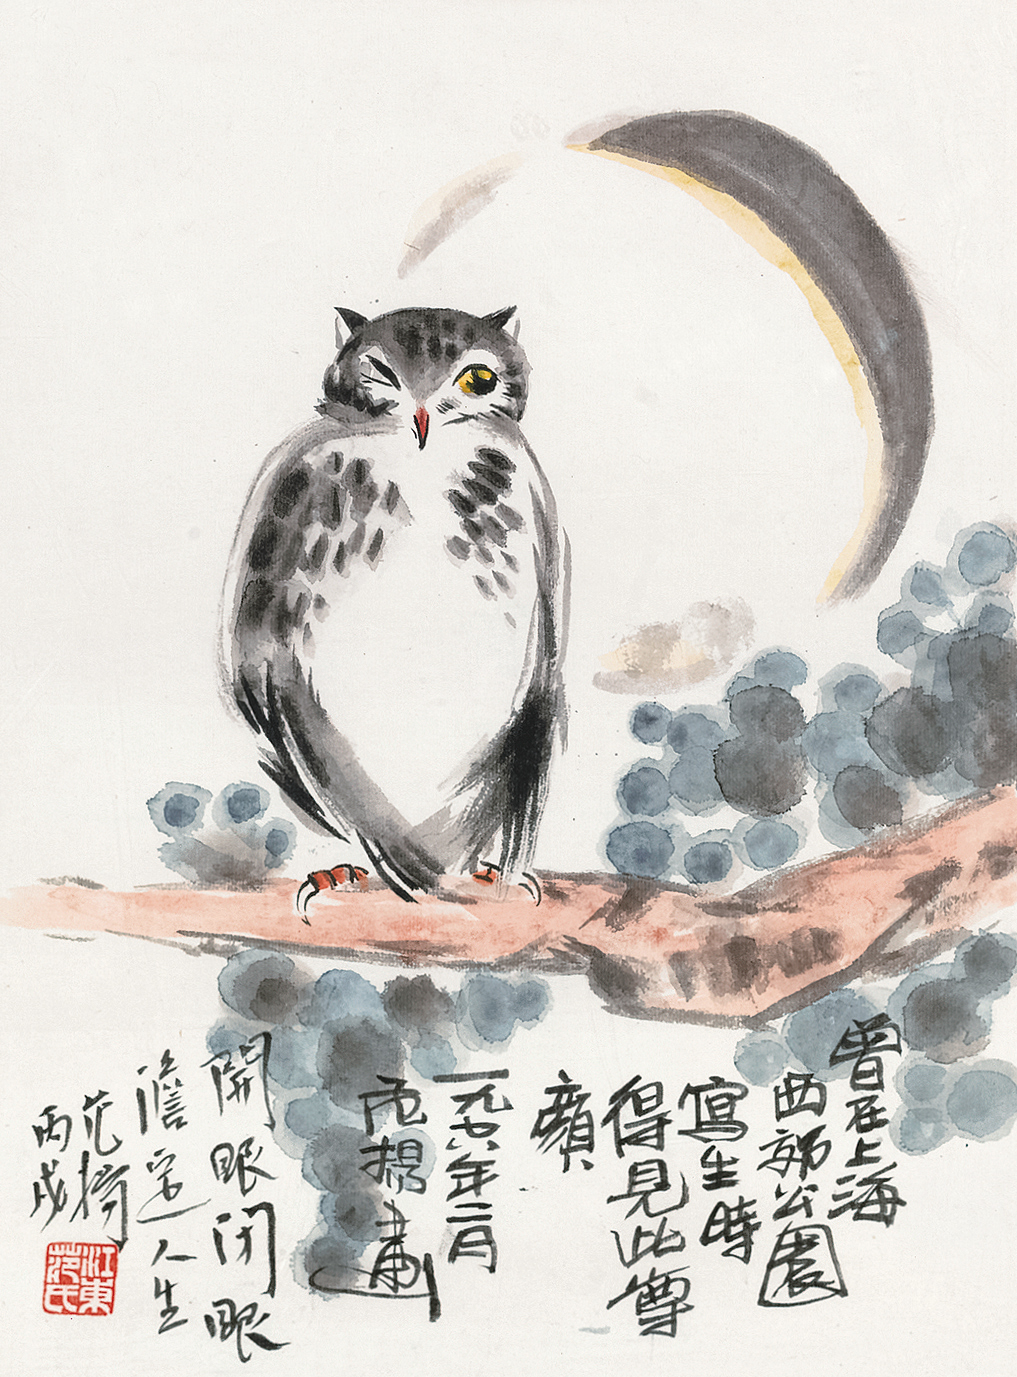 曾在上海
西郊公園
寫生時
得見此尊
顏
一九年二月
畫
開眼閉眼
澹定人生
范揚
丙戌
江東
范氏